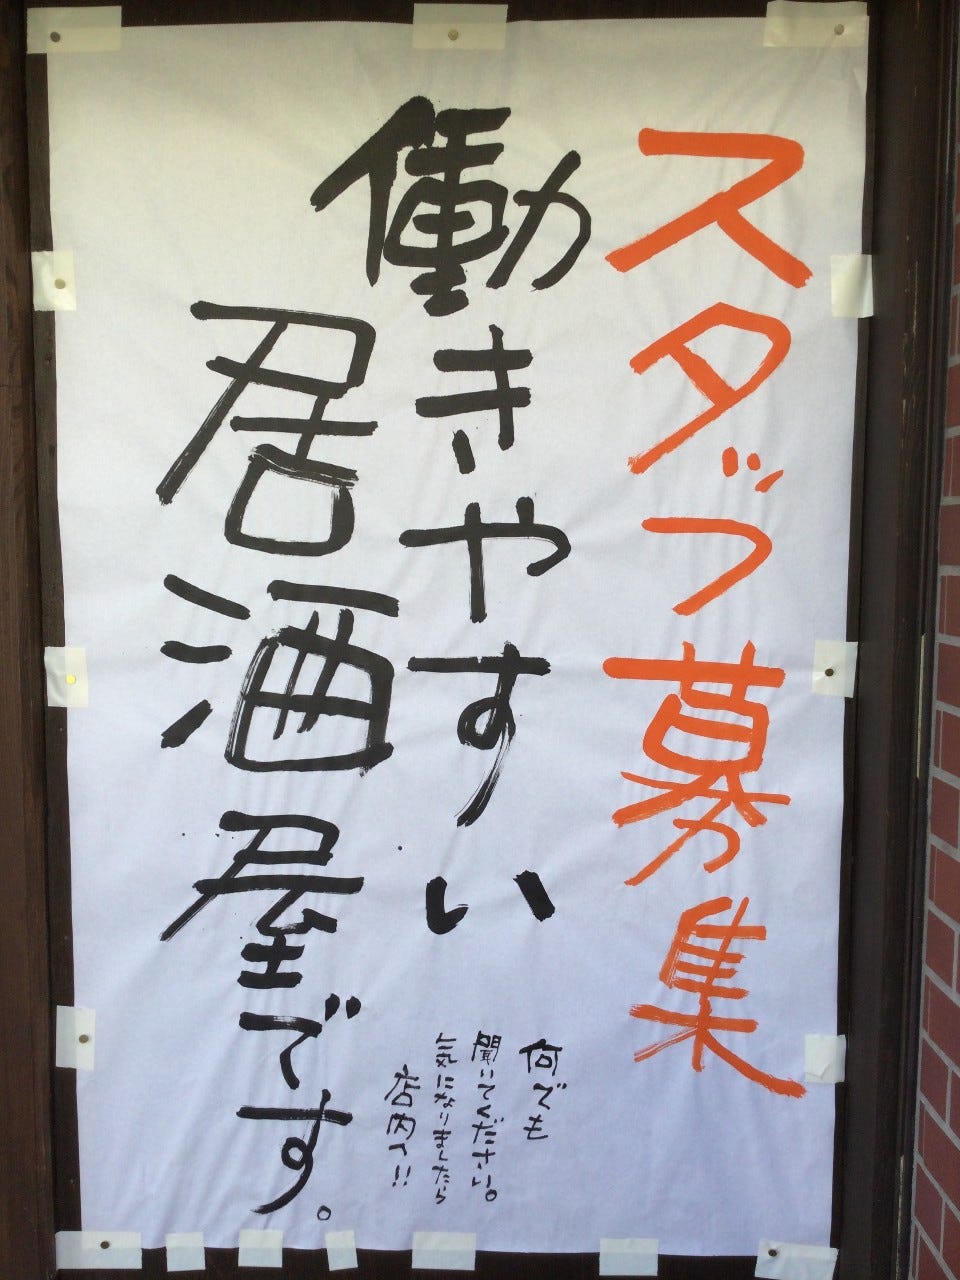 スタッフ募集
働きやすい
居酒屋です。
何でも
聞いてください。
気になりましたら
店内へ!!